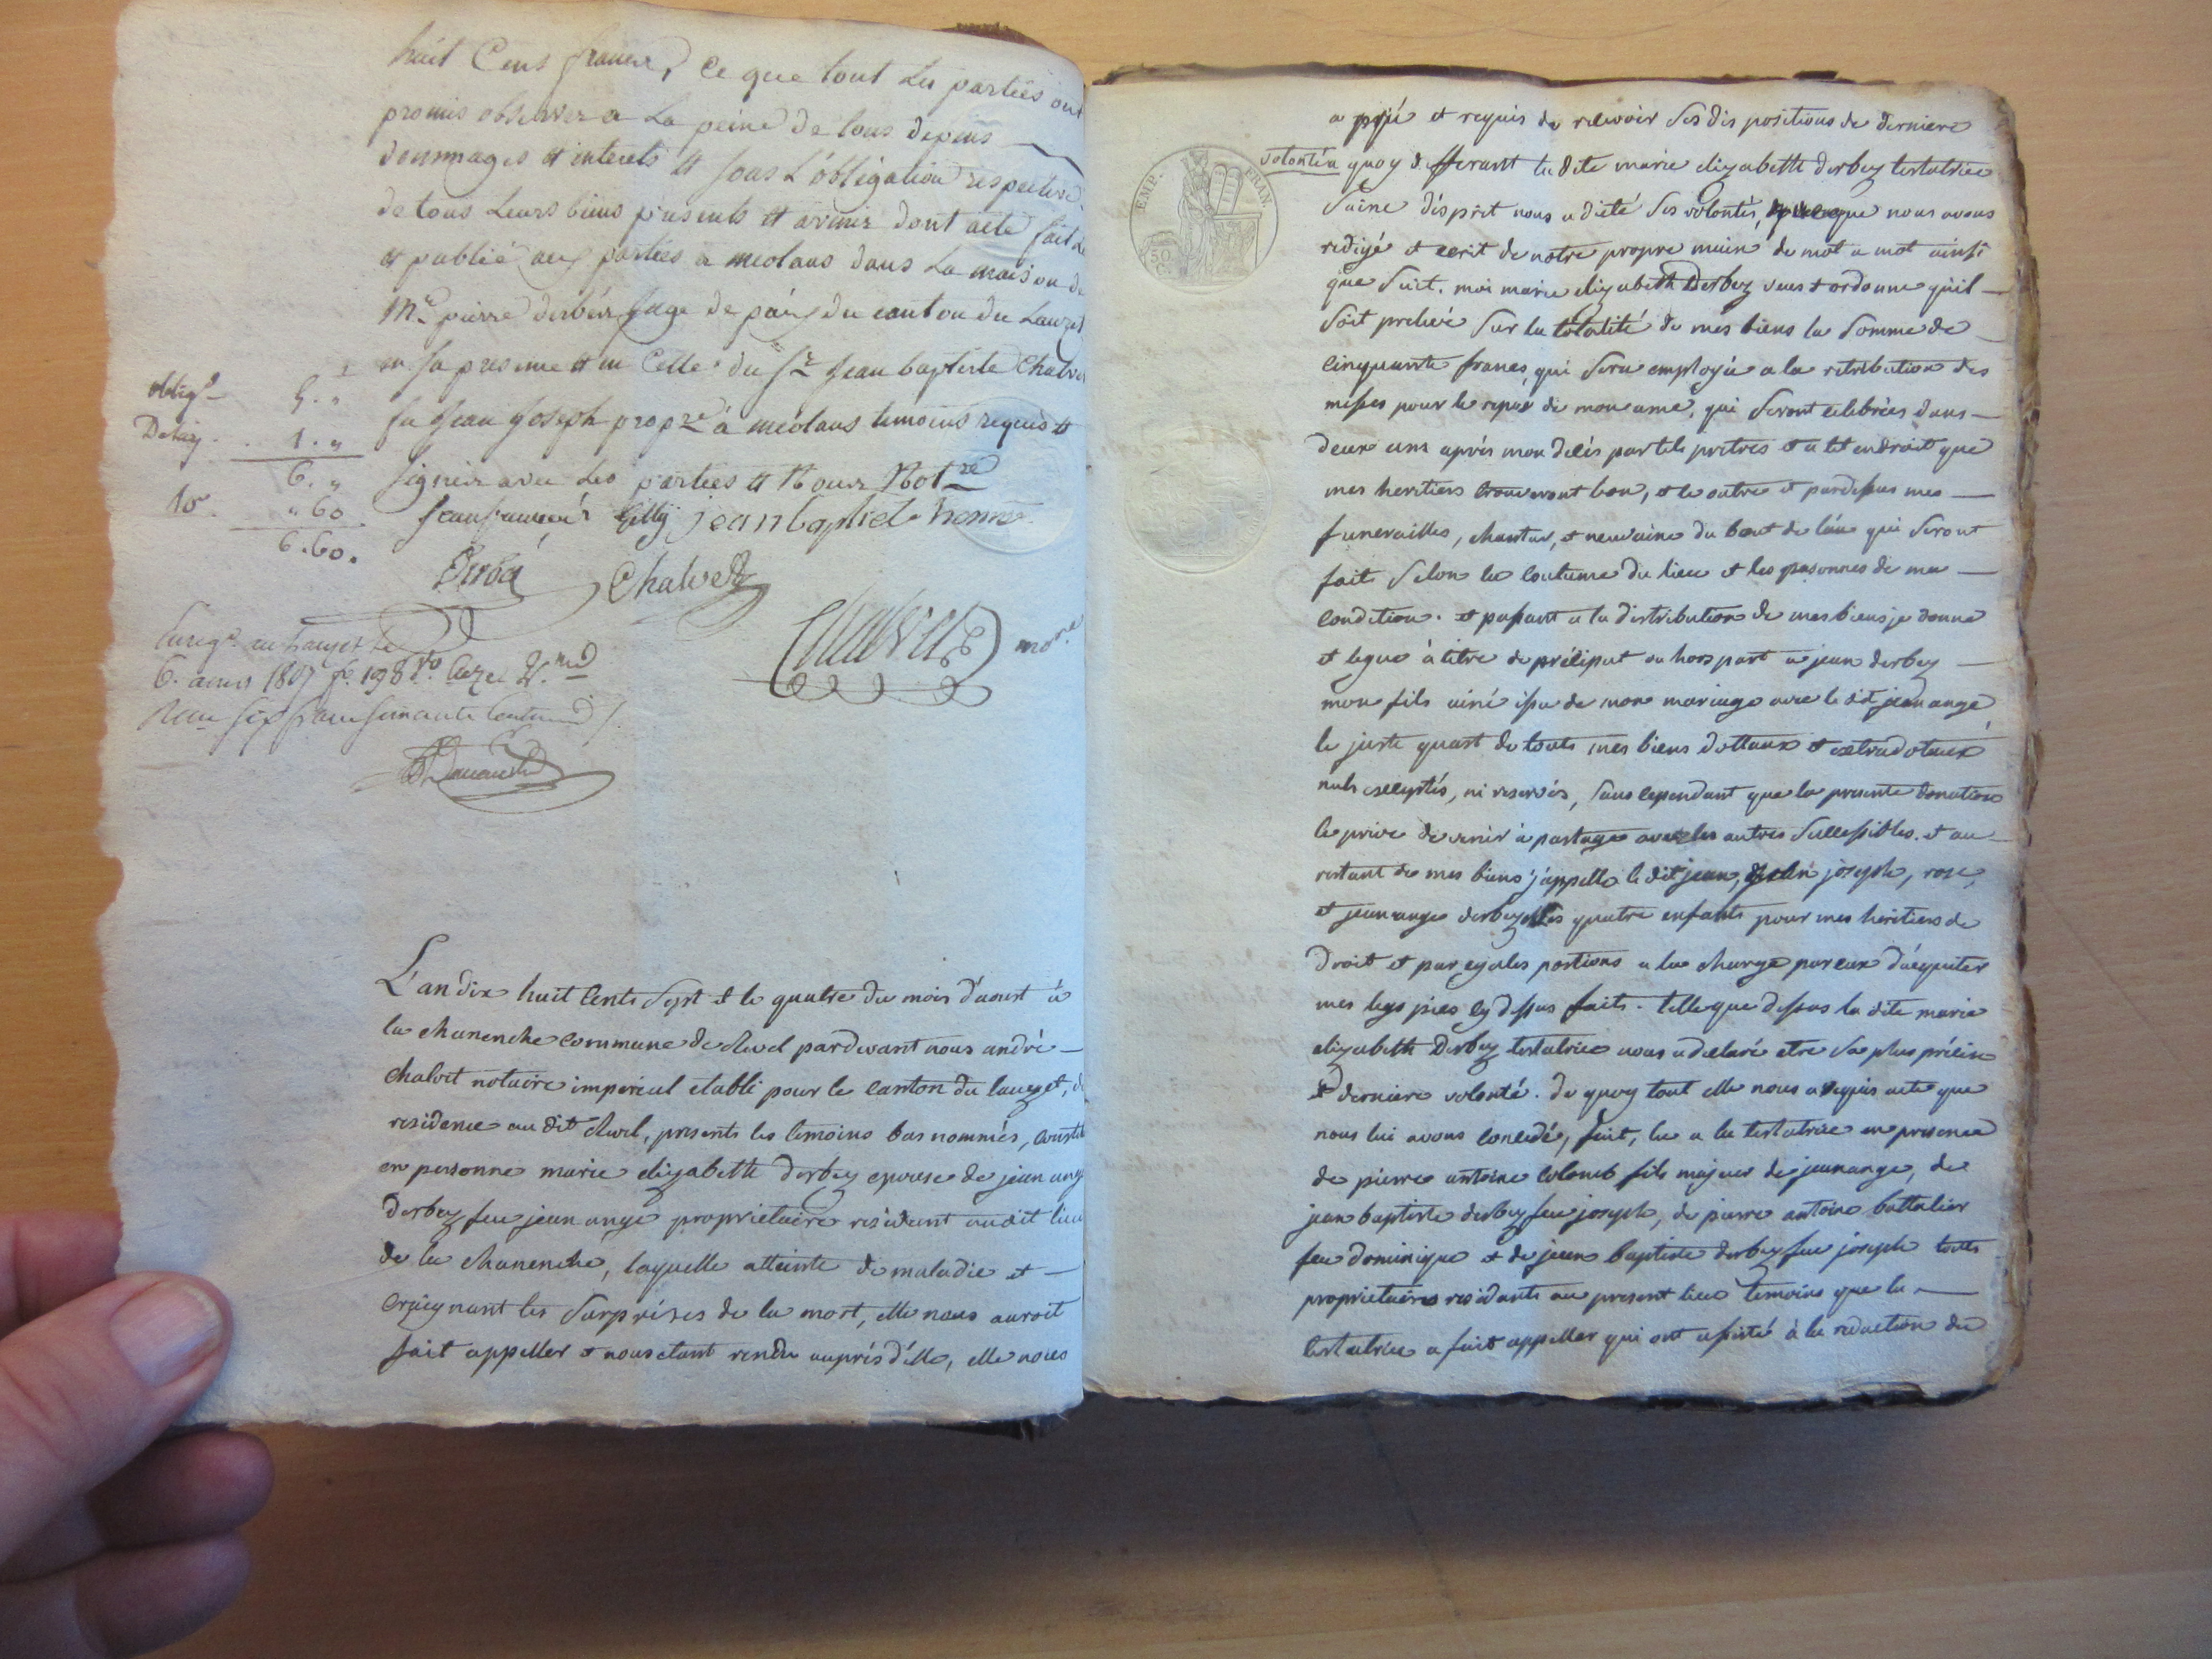 huit Cens francs, Ce que tout Les parties ont
promis observer a La peine De tous Depens
Dommages et interets et sous L'obligation respective
de tous Leurs biens presents et avenir Dont acte fait Lu
et publié aux parties a meolans Dans La maison de
Mre pierre Derbés juge De paix Du canton Du Lauzet
en sa presence et en Celle du Sr jean baptiste Chalve
fu jean joseph proprre à meolans temoins requis et
signés avec Les parties et Nous Notre
Gilly jean baptiste
Oblign 5. "
1. "
6. "
10. " 60
6.60.
Derbés Chalvet
Chalvet
Enregé au Lauzet le
6. aout 1807 fo. 198 Vo.
six francs soixante Centimes
L'an dix huit Cents Sept & le quatre du mois d'aoust à
la chanenche commune de Revel pardevant nous andré
chalvet notaire imperial etabli pour le canton du lauzet, de
residence au dit Revel, presents les temoins bas nommés, constit
en personne marie elizabeth derbez epouse de jean ange
Derbez feu jean ange proprietaire residant audit lieu
de la chanenche, laquelle atteinte de maladie et
craignant les Surprises de la mort, elle nous auroit
fait appeller & nous etant rendu auprés d'elle, elle nous
a prié et requis de recevoir Ses dis positions de derniere
volonté a quoy defferant la dite marie elizabeth derbez testatrice
Saine d'ésprit nous a dicté Ses volontés, que nous avons
redigé et ecrit de notre propre main de mot a mot ainsi
que Suit. moi marie elizabeth Derbez veus & ordonne qu'il
Soit prelevé Sur la totalité de mes biens la Somme de
Cinquante francs, qui Sera employée a la retribution des
messes pour le repos de mon ame, qui Seront celebrées dans
deux ans aprés mon decés par tels pretres et a tel endroit que
mes heritiers trouveront bon, et ce outre et pardessus mes
funerailles, chantar, et neuvaine du bout de l'an qui Seront
faits Selon la Coutume du lieu et les personnes de ma
Condition. et passant a la distribution de mes biens je donne
et legue à titre de préliput ou hors part a jean derbez
mon fils ainé issu de mon mariage avec le dit jean ange
le juste quart de touts mes biens dottaux et extradotaux
nuls exceptés, ni reservés, Sans cependant que la presente donation
le prive de venir à partage avec les autres Sucessibles. et au
restant de mes biens j'appelle le dit jean, joseph, rose,
et jean ange derbez mes quatre enfants pour mes heritiers de
Droit et par egales portions a la charge par eux d'acquiter
mes legs pies cy dessus faits. telle que dessus la dite marie
elizabeth Derbez testatrice nous a declaré etre Sa plus précise
& derniere volonté. de quoy tout elle nous a requis acte que
nous lui avons Concedé, fait, lu a la testatrice en presence
de pierre antoine Colomb fils majeur de jean ange, de
jean baptiste derbez feu joseph, de pierre antoine battalier
feu dominique & de jean baptiste derbez feu joseph touts
proprietaires residants au present lieu temoins que la
testatrice a fait appeller qui ont assisté à la redaction du
EMP. FRAN.
50 C